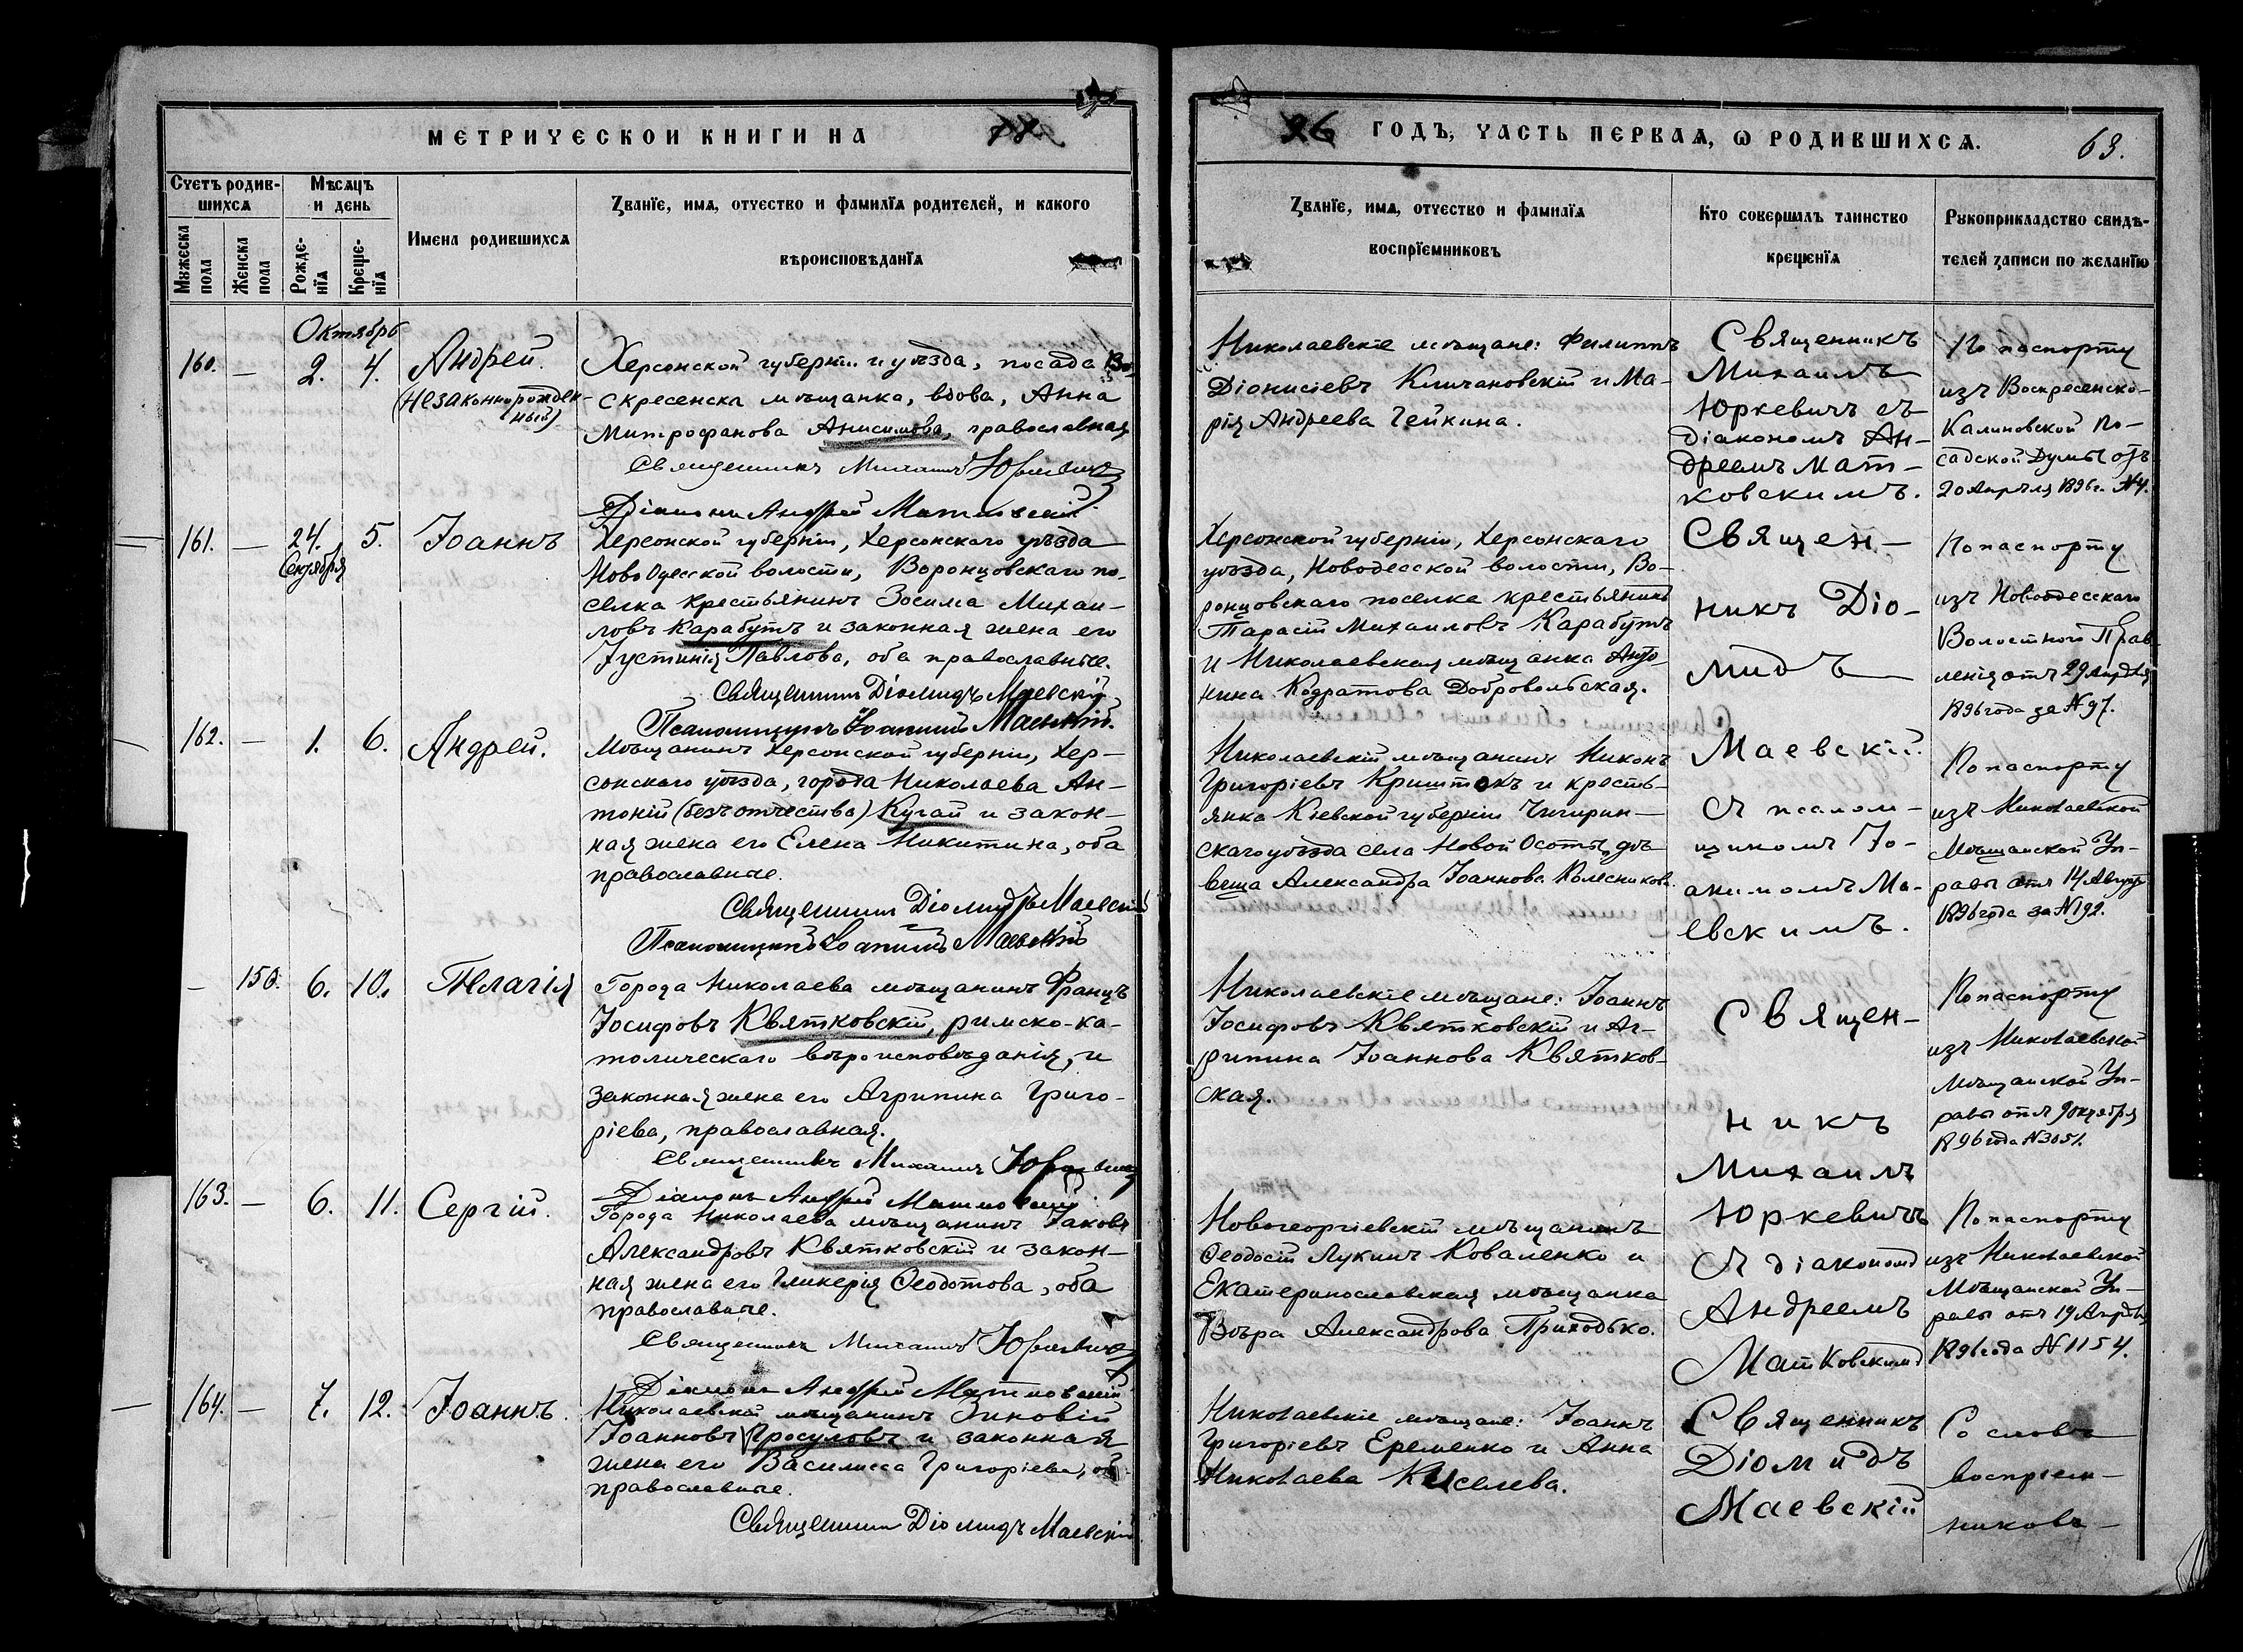 МЕТРИЧЕСКОЙ КНИГИ НА 18
96 ГОДЪ, ЧАСТЬ ПЕРВАѦ, Ѡ РОДИВШИХСѦ.
63.
Счетъ родив-
шихсѧ
Мѣсѧцъ
и день
Мужеска
пола
Женска
пола
Рожде-
нїѧ
Креще-
нїѧ
Имена родившихсѧ
Званїе, имѧ, отчество и фамилїѧ родителей, и какого
вѣроисповѣданїѧ
Званїе, имѧ, отчество и фамилїѧ
воспрїемниковъ
Кто совершалъ таинство
крещенїѧ
Рукоприкладство свидѣ-
телей записи по желанїю
Октябрь
160. — 2. 4. Андрей.
(Незаконнорожден-
ный)
Херсонской губерніи и уѣзда, посада Во-
скресенска мѣщанка, вдова, Анна
Митрофанова Анисимова, православная
Священникъ Михаилъ Юркевичъ
Діаконъ Андрей Матковскій.
Николаевскіе мѣщане: Филиппъ
Діонисіевъ Климановскій и Ма-
рія Андреева Чейкина.
Священникъ
Михаилъ
Юркевичъ съ
діакономъ Ан-
дреемъ Мат-
ковскимъ.
По паспорту
изъ Воскресенско-
Калиновской По-
садской Думы отъ
20 Апрѣля 1896 г. №4.
161. — 24. 5. Іоаннъ
Сентября
Херсонской губерніи, Херсонскаго уѣзда
Ново Одесской волости, Воронцовскаго по-
селка крестьянинъ Зосима Михаи-
ловъ Карабутъ и законная жена его
Іустинія Павлова, оба православные.
Священникъ Діомидъ Маевскій
Псаломщикъ Іоанникій Маевскій.
Херсонской губерніи, Херсонскаго
уѣзда, Новодесской волости, Во-
ронцовскаго поселка крестьянинъ
Тарасій Михаиловъ Карабутъ
и Николаевская мѣщанка Анто-
нина Кодратова Добровольская.
Священ-
никъ Діо-
мидъ
По паспорту
изъ Новоодесскаго
Волостного Прав-
ленія отъ 29 Апрѣля
1896 года за №97.
162. — 1. 6. Андрей.
Мѣщанинъ Херсонской губерніи, Хер-
сонскаго уѣзда, города Николаева Ан-
тоній (безъ отчества) Кугай и закон-
ная жена его Елена Никитина, оба
православные.
Священникъ Діомидъ Маевскій
Псаломщикъ Маевскій
Николаевскій мѣщанинъ Никонъ
Григоріевъ Криштокъ и кресть-
янка Кіевской губерніи Чигирин-
скаго уѣзда села Новой Осоты, дѣ-
вица Александра Іоаннова Колесникова.
Маевскій.
съ псалом-
щикомъ Іо-
аникіемъ Ма-
евскимъ.
По паспорту
изъ Николаевской
Мѣщанской Уп-
равы отъ 14 Августа
1896 года за №192.
— 150. 6. 10. Пелагія
Города Николаева мѣщанинъ Францъ
Іосифовъ Квятковскій, римско-ка-
толическаго вѣроисповѣданія, и
законная жена его Агрипина Григо-
ріева, православная.
Священникъ Михаилъ Юркевичъ
Діаконъ Андрей Матковскій.
Николаевскіе мѣщане: Іоаннъ
Іосифовъ Квятковскій и Аг-
рипина Іоаннова Квятков-
ская.
Священ-
никъ
Михаилъ
По паспорту
изъ Николаевской
Мѣщанской Уп-
равы отъ 9 Октября
1896 года №3051.
163. — 6. 11. Сергій.
Города Николаева мѣщанинъ Іаковъ
Александровъ Квятковскій и закон-
ная жена его Гликерія Ѳеодотова, оба
православные.
Священникъ Михаилъ Юркевичъ
Діаконъ Андрей Матковскій
Новогеоргіевскій мѣщанинъ
Ѳеодосій Лукинъ Коваленко и
Екатеринославская мѣщанка
Вѣра Александрова Приходько.
Юркевичъ
съ діакономъ
Андреемъ
Матковскимъ
По паспорту
изъ Николаевской
Мѣщанской Уп-
равы отъ 19 Апрѣля
1896 года №1154.
164. — 7. 12. Іоаннъ.
Николаевскій мѣщанинъ Зиновій
Іоанновъ Гросуловъ и законная
жена его Василисса Григоріева, оба
православные.
Священникъ Діомидъ Маевскій
Николаевскіе мѣщане: Іоаннъ
Григоріевъ Еременко и Анна
Николаева Киселева.
Священникъ
Діомидъ
Маевскій
Со словъ
воспріем-
никовъ